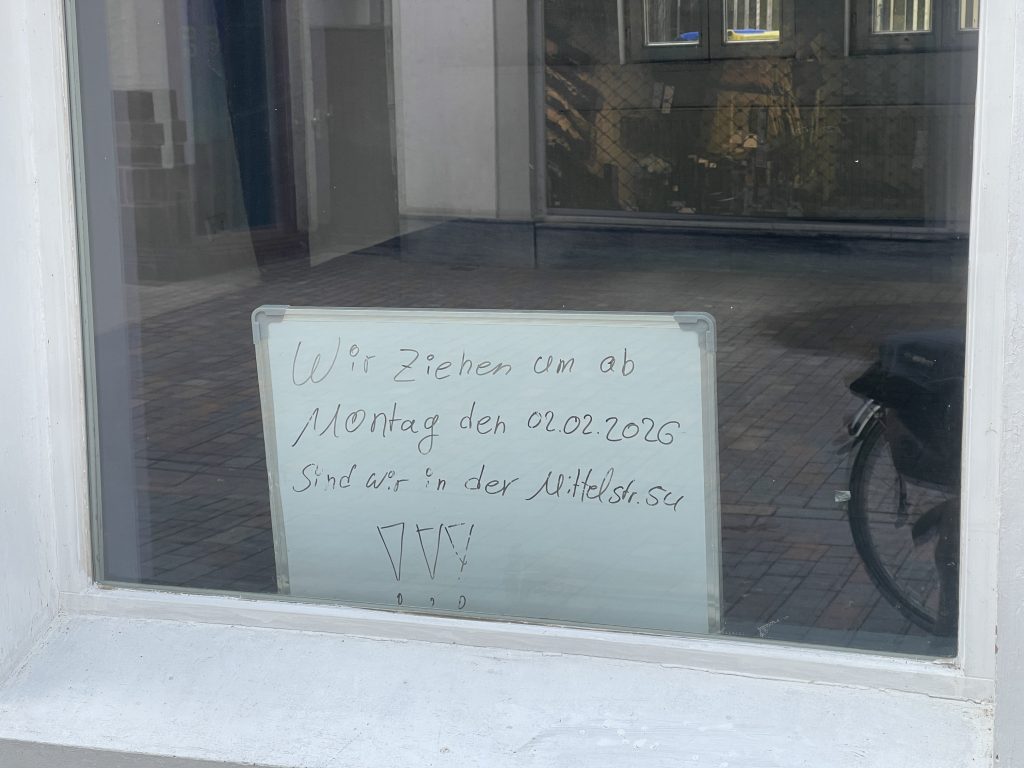 Wir Ziehen um ab
Montag den 02.02.2026
Sind wir in der Mittelstr. 54
!!!